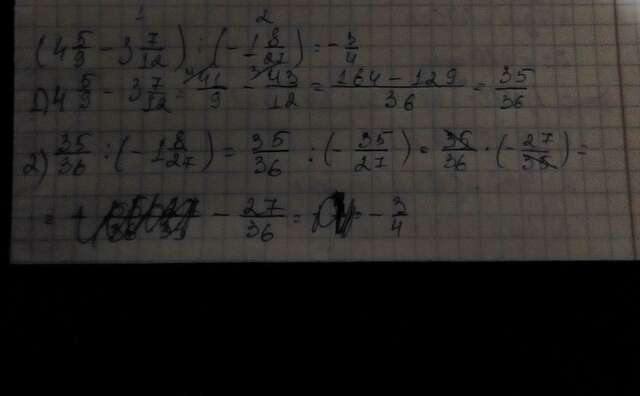 1 2
(4 5/9 - 3 7/12) : (-1 8/27) = -3/4
1) 4 5/9 - 3 7/12 = 41/9 - 43/12 = 164-129/36 = 35/36
2) 35/36 : (-1 8/27) = 35/36 : (-35/27) = 35/36 · (-27/35) =
= - 27/36 = - 3/4